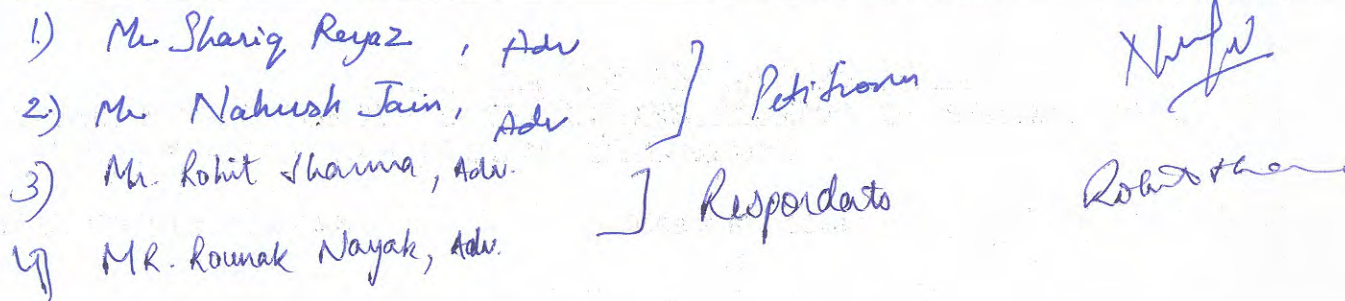 1) Mr Shariq Reyaz, Adv
2.) Mr Nahush Jain, Adv ] Petitioners
3) Mr. Rohit Sharma, Adv.
4) MR. Rounak Nayak, Adv. ] Respondents
Rohit Sharma